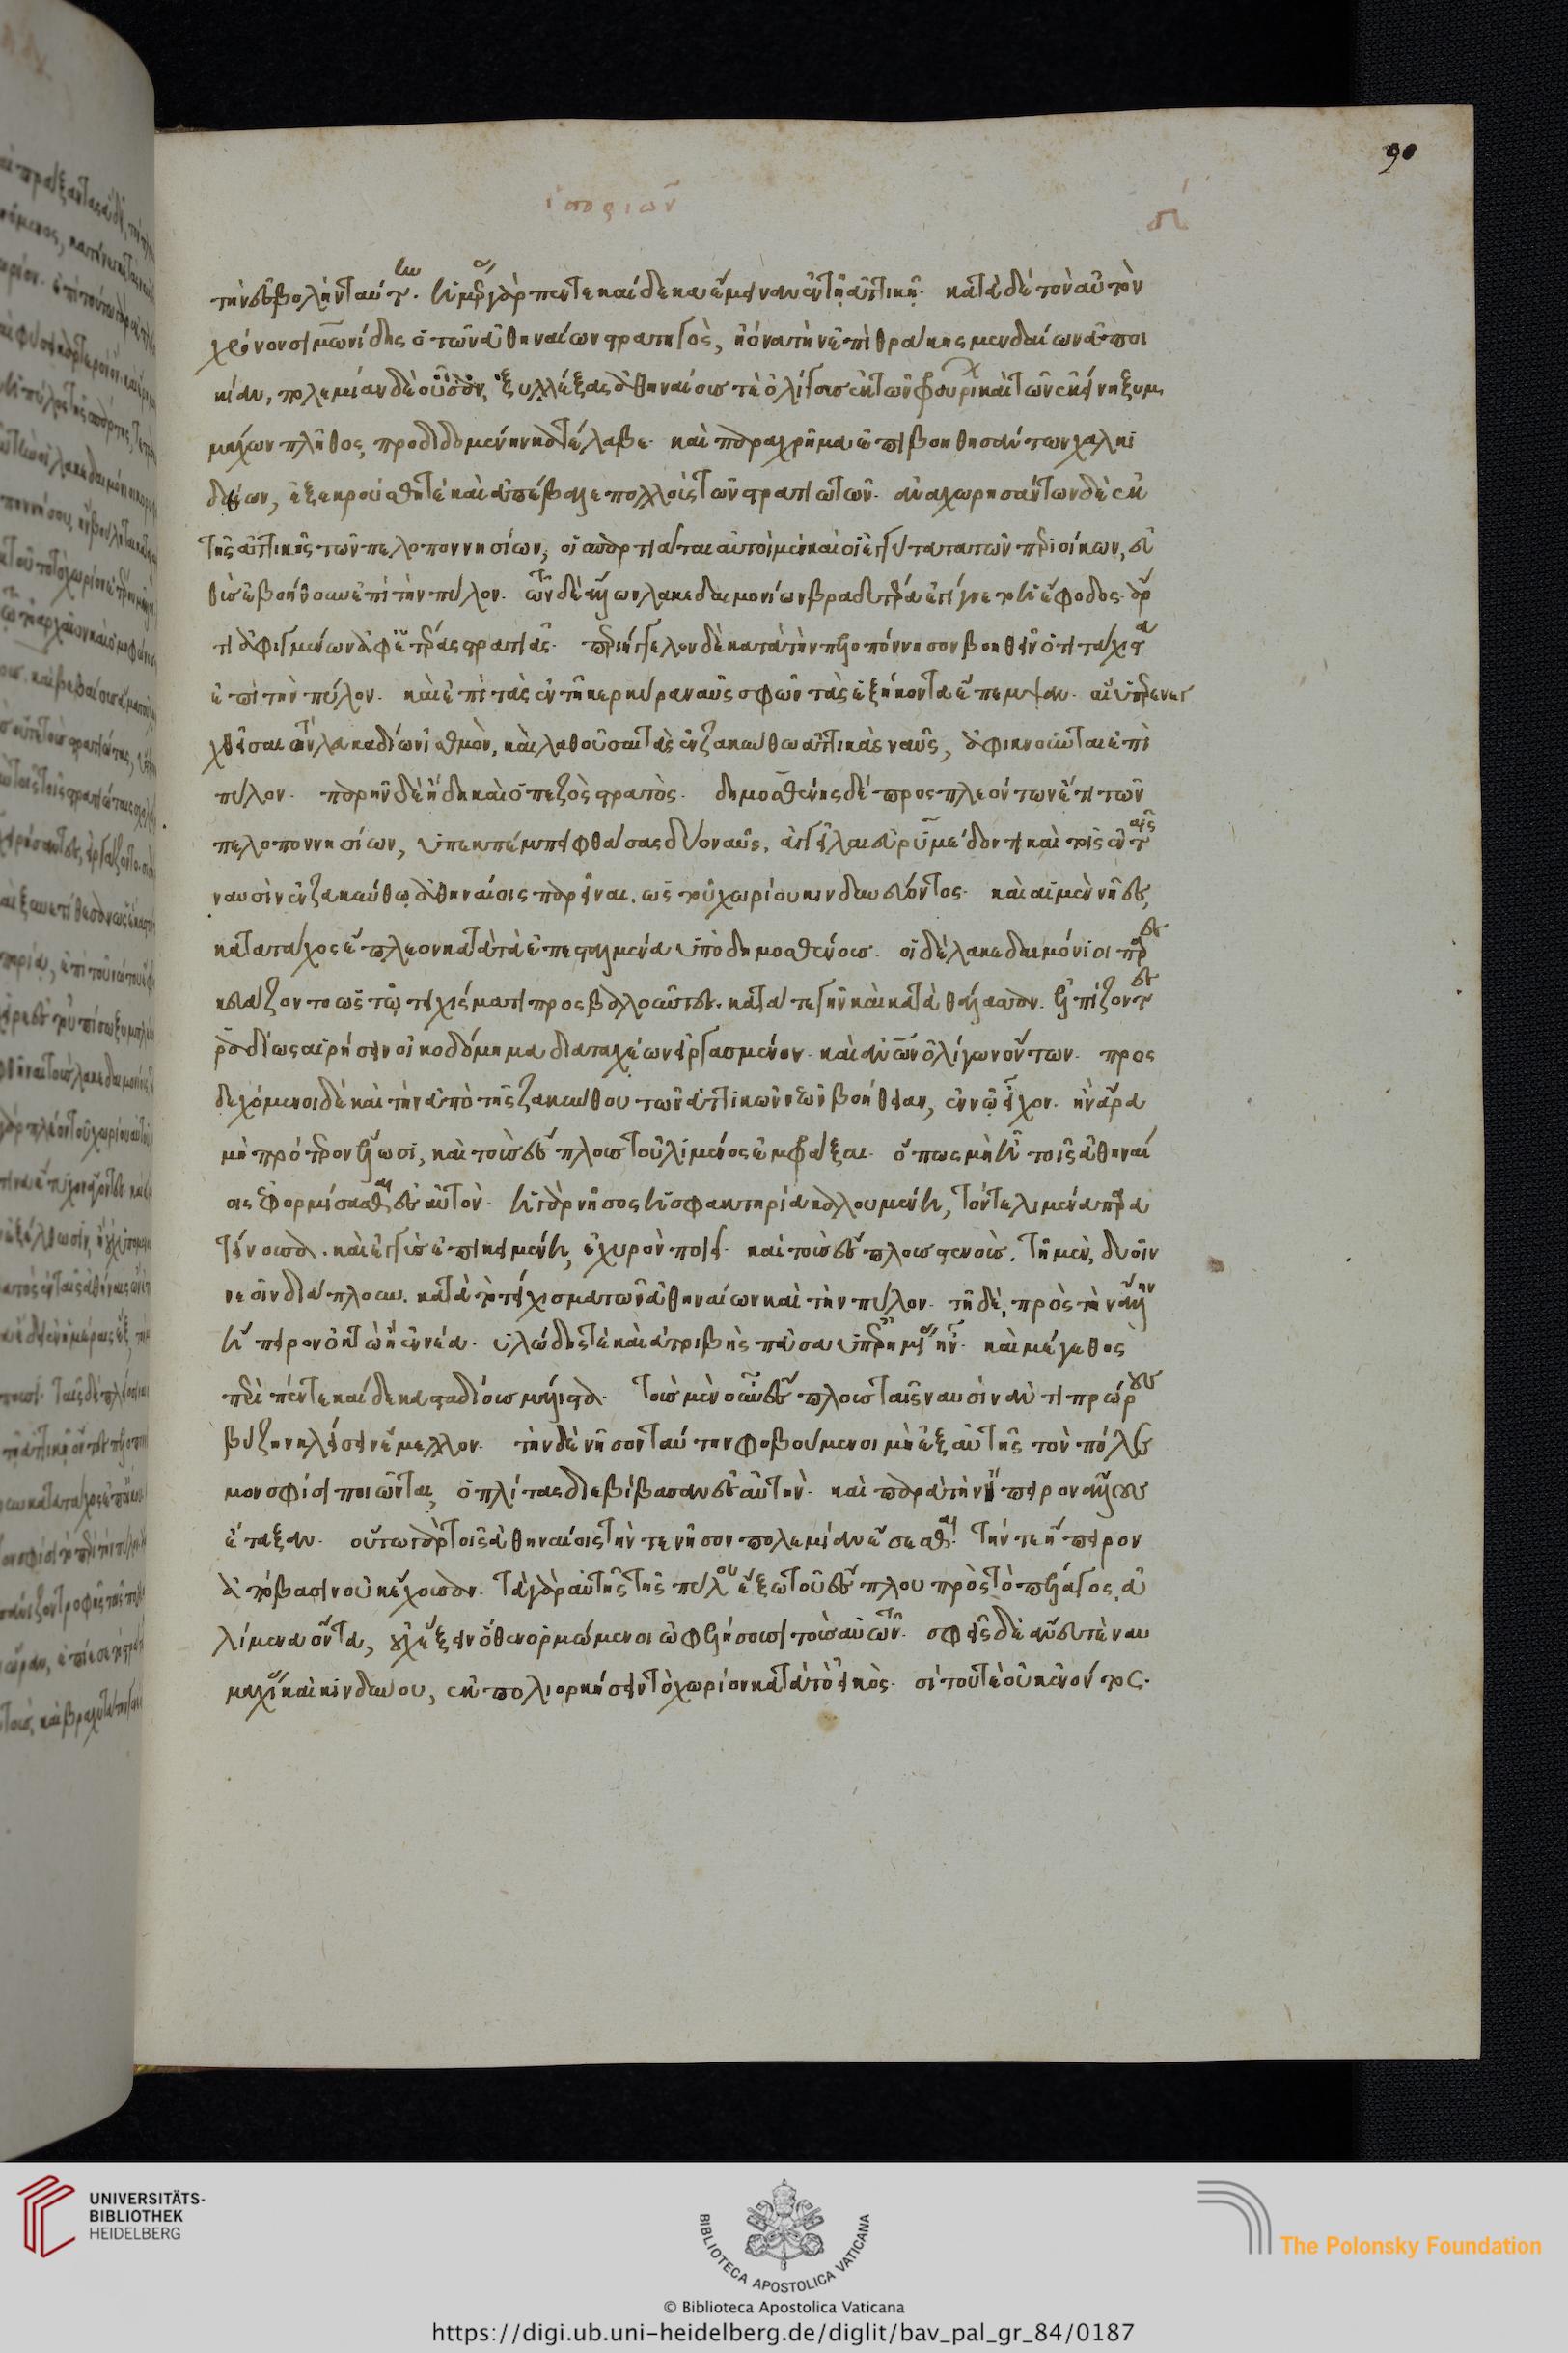 90
ἱστοριῶν
τὴν ἐσβολὴν ταύτην. ἡμέρας γὰρ πεντεκαίδεκα ἔμειναν ἐν τῇ ἀττικῇ. κατὰ δὲ τὸν αὐτὸν
χρόνον σιμωνίδης ὁ τῶν ἀθηναίων στρατηγὸς, ἠιόνα τὴν ἐπὶ θράκης μενδαίων ἀποι
κίαν, πολεμίαν δὲ οὖσαν, ξυλλέξας ἀθηναίους τὲ ὀλίγους ἐκ τῶν φρουρίων καὶ τῶν ἐκείνῃ ξυμ
μάχων πλῆθος, προδιδομένην κατέλαβε. καὶ παραχρῆμα ἐπιβοηθησάντων χαλκι
δέων, ἐξεκρούσθη τὲ καὶ ἀπέβαλε πολλοὺς τῶν στρατιωτῶν. ἀναχωρησάντων δὲ ἐκ
τῆς ἀττικῆς τῶν πελοποννησίων, οἱ σπαρτιᾶται αὐτοὶ μὲν καὶ οἱ ἐγγύτατα τῶν περιοίκων, εὐ
θὺς ἐβοήθουν ἐπὶ τὴν πύλον. τῶν δὲ ἄλλων λακεδαιμονίων βραδυτέρα ἐγίγνετο ἡ ἔφοδος. ἄρ
τι ἀφιγμένων ἀφ' ἑτέρας στρατιᾶς. περιήγγελον δὲ κατὰ τὴν πελοπόννησον βοηθεῖν ὅτι τάχιστα
ἐπὶ τὴν πύλον. καὶ ἐπὶ τὰς ἐν τῇ κερκύρα ναῦς σφῶν τὰς ἑξήκοντα ἔπεμψαν. αἳ ὑπερενε
χθεῖσαι τὸν λευκαδίων ἰσθμὸν, καὶ λαθοῦσαι τὰς ἐν ζακύνθω ἀττικὰς ναῦς, ἀφικνοῦνται ἐπὶ
πύλον. παρῆν δὲ ἤδη καὶ ὁ πεζὸς στρατὸς. δημοσθένης δὲ προσπλεόντων ἔτι τῶν
πελοποννησίων, ὑπεκπέμπει φθάσας δύο ναῦς, ἀγγεῖλαι εὐρυμέδοντι καὶ τοῖς ἐν ταῖς
ναυσὶν ἐν ζακύνθῳ ἀθηναίοις παρεῖναι. ὡς τοῦ χωρίου κινδυνεύοντος. καὶ αἱ μὲν νῆες,
κατὰ τάχος ἔπλεον κατὰ τὰ ἐπεσταλμένα ὑπὸ δημοσθένους. οἱ δὲ λακεδαιμόνιοι παρε
σκευάζοντο ὡς τῷ τειχίσματι προσβαλοῦντες. κατά τε γῆν καὶ κατὰ θάλασσαν. ἐλπίζοντες
ῥαδίως αἱρήσειν οἰκοδόμημα διὰ ταχέων εἰργασμένον. καὶ ἀνθρώπων ὀλίγων ὄντων. προσ
δεχόμενοι δὲ καὶ τὴν ἀπὸ τῆς ζακύνθου τῶν ἀττικῶν νεῶν βοήθειαν, ἐν νῷ εἶχον. ἢν ἄρα
μὴ πρότερον ἕλωσι, καὶ τοὺς ἔσπλους τοῦ λιμένος ἐμφράξαι. ὅπως μὴ ᾖ τοῖς ἀθηναί
οις ἐφορμίσασθαι ἐς αὐτὸν. ἡ γὰρ νῆσος ἡ σφακτηρία καλουμένη, τόν τε λιμένα παρα
τείνουσα. καὶ ἐγγὺς ἐπικειμένη, ἐχυρὸν ποιεῖ. καὶ τοὺς ἔσπλους στενοὺς. τῇ μὲν, δυοῖν
νεοῖν διάπλουν. κατὰ τὸ τείχισμα τῶν ἀθηναίων καὶ τὴν πύλον. τῇ δὲ, πρὸς τὴν ἄλλην
ἤπειρον ὀκτὼ ἢ ἐννέα. ὑλώδης τὲ καὶ ἀτριβὴς πᾶσα ὑπ' ἐρημίας ἦν. καὶ μέγεθος
περὶ πέντε καίδεκα σταδίους μάλιστα. τοὺς μὲν οὖν ἔσπλους ταῖς ναυσὶν ἀντιπρώροις
βύζην κλείσειν ἔμελλον. τὴν δὲ νῆσον ταύτην φοβούμενοι μὴ ἐξ αὐτῆς τὸν πόλε
μον σφίσι ποιῶνται, ὁπλίτας διεβίβασαν ἐς αὐτὴν. καὶ παρὰ τὴν ἤπειρον ἄλλους
ἔταξαν. οὕτω γὰρ τοῖς ἀθηναίοις τήν τε νῆσον πολεμίαν ἔσεσθαι. τήν τε ἤπειρον
ἀπόβασιν οὐκ ἔχουσαν. τὰ γὰρ αὐτῆς τῆς πύλου ἔξω τοῦ ἔσπλου πρὸς τὸ πέλαγος, ἀ
λίμενα ὄντα, οὐχ ἕξειν ὅθεν ὁρμώμενοι ὠφελήσουσι τοὺς αὑτῶν. σφεῖς δὲ ἄνευ τε ναυ
μαχίας καὶ κινδύνου, ἐκπολιορκήσειν τὸ χωρίον κατὰ τὸ εἰκὸς. σίτου τὲ οὐκ ἐνόντος.
UNIVERSITÄTS-
BIBLIOTHEK
HEIDELBERG
BIBLIOTECA APOSTOLICA VATICANA
The Polonsky Foundation
© Biblioteca Apostolica Vaticana
https://digi.ub.uni-heidelberg.de/diglit/bav_pal_gr_84/0187